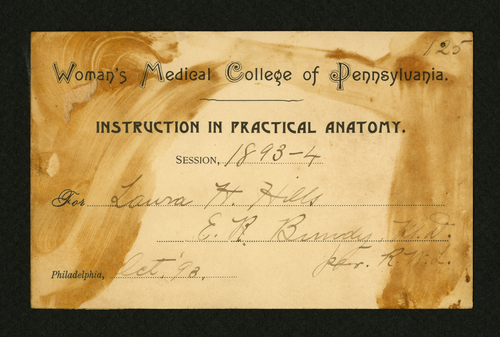 125
Woman's Medical College of Pennsylvania.
INSTRUCTION IN PRACTICAL ANATOMY.
SESSION, 1893-4
For Laura H. Hills
E. R. Bundy, M.D.
per.
Philadelphia, Oct. '93.